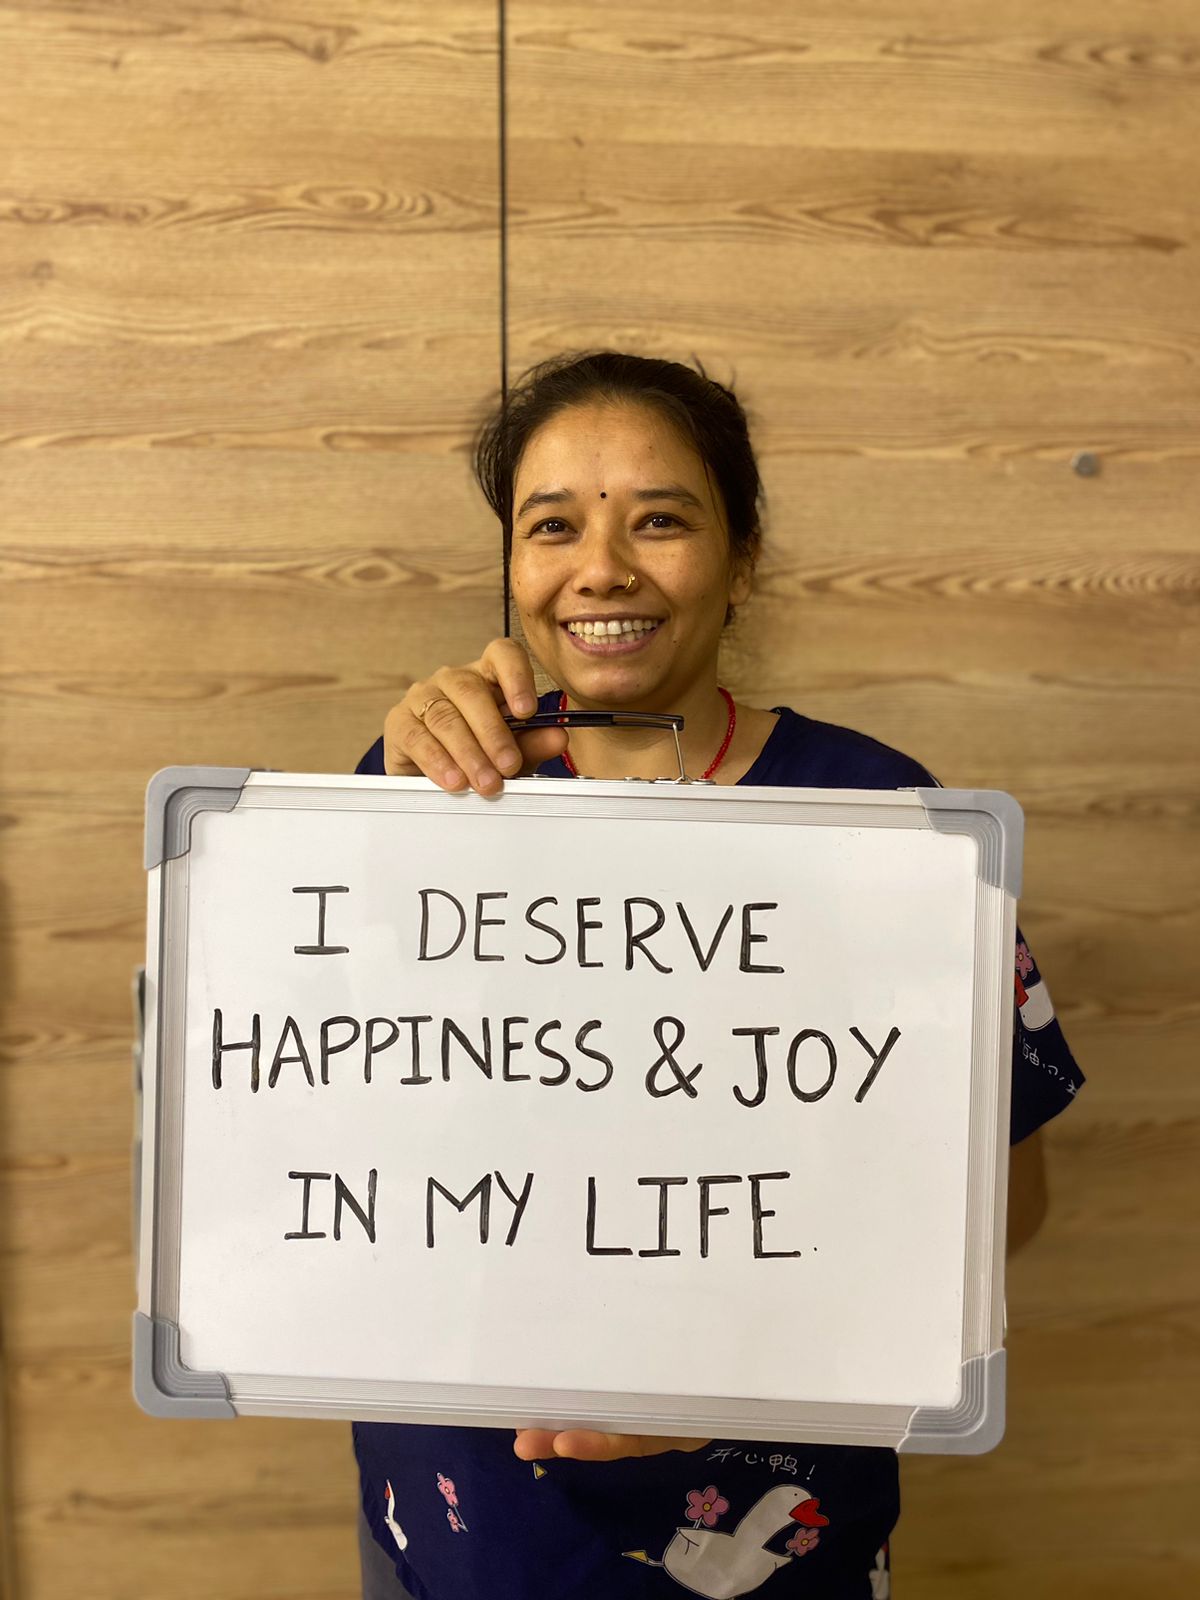 I DESERVE
HAPPINESS & JOY
IN MY LIFE.
开心鸭!